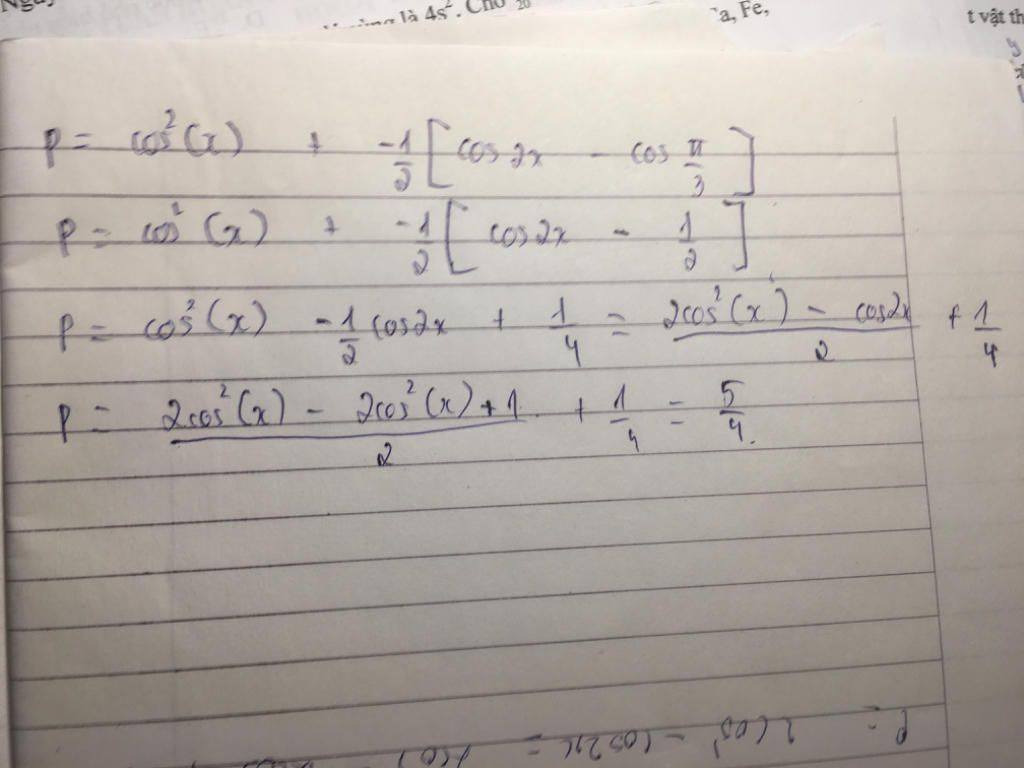 là 4s². Cho 20
Fe,
t vật th
P = cos²(x) + -1/2 [cos2x - cos π/3]
P = cos²(x) + -1/2 [cos2x - 1/2]
P = cos²(x) -1/2 cos2x + 1/4 = (2cos²(x) - cos2x)/2 + 1/4
P = (2cos²(x) - 2cos²(x) + 1)/2 + 1/4 = 5/4.